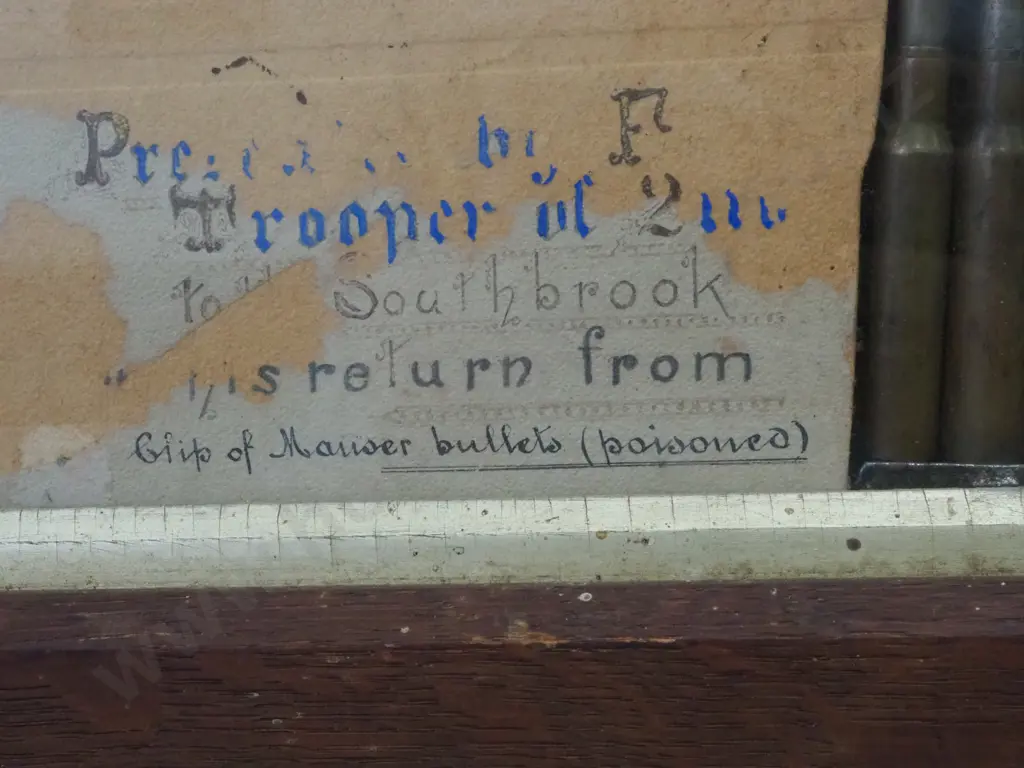 Presented by F
Trooper of 2nd
to Southbrook
his return from
Clip of Mauser bullets (poisoned)